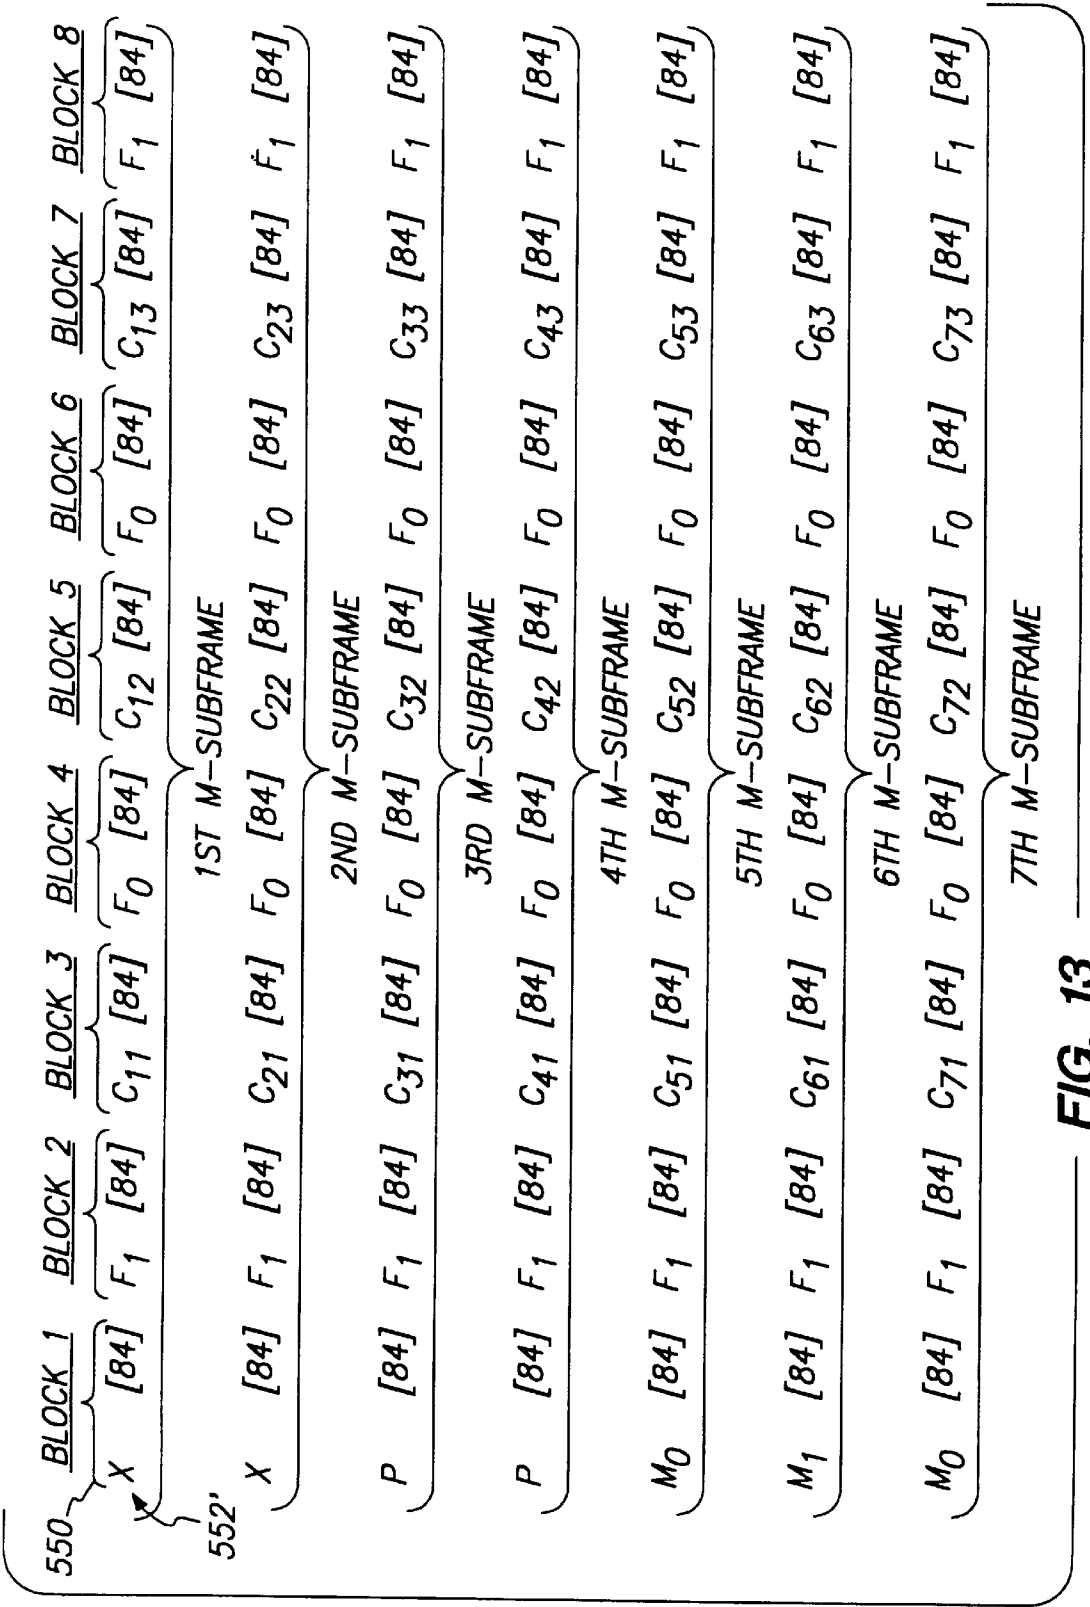 BLOCK 1 BLOCK 2 BLOCK 3 BLOCK 4 BLOCK 5 BLOCK 6 BLOCK 7 BLOCK 8
550
X [84] F1 [84] C11 [84] F0 [84] C12 [84] F0 [84] C13 [84] F1 [84]
552'
1ST M–SUBFRAME
X [84] F1 [84] C21 [84] F0 [84] C22 [84] F0 [84] C23 [84] F1 [84]
2ND M–SUBFRAME
P [84] F1 [84] C31 [84] F0 [84] C32 [84] F0 [84] C33 [84] F1 [84]
3RD M–SUBFRAME
P [84] F1 [84] C41 [84] F0 [84] C42 [84] F0 [84] C43 [84] F1 [84]
4TH M–SUBFRAME
M0 [84] F1 [84] C51 [84] F0 [84] C52 [84] F0 [84] C53 [84] F1 [84]
5TH M–SUBFRAME
M1 [84] F1 [84] C61 [84] F0 [84] C62 [84] F0 [84] C63 [84] F1 [84]
6TH M–SUBFRAME
M0 [84] F1 [84] C71 [84] F0 [84] C72 [84] F0 [84] C73 [84] F1 [84]
7TH M–SUBFRAME
FIG. 13